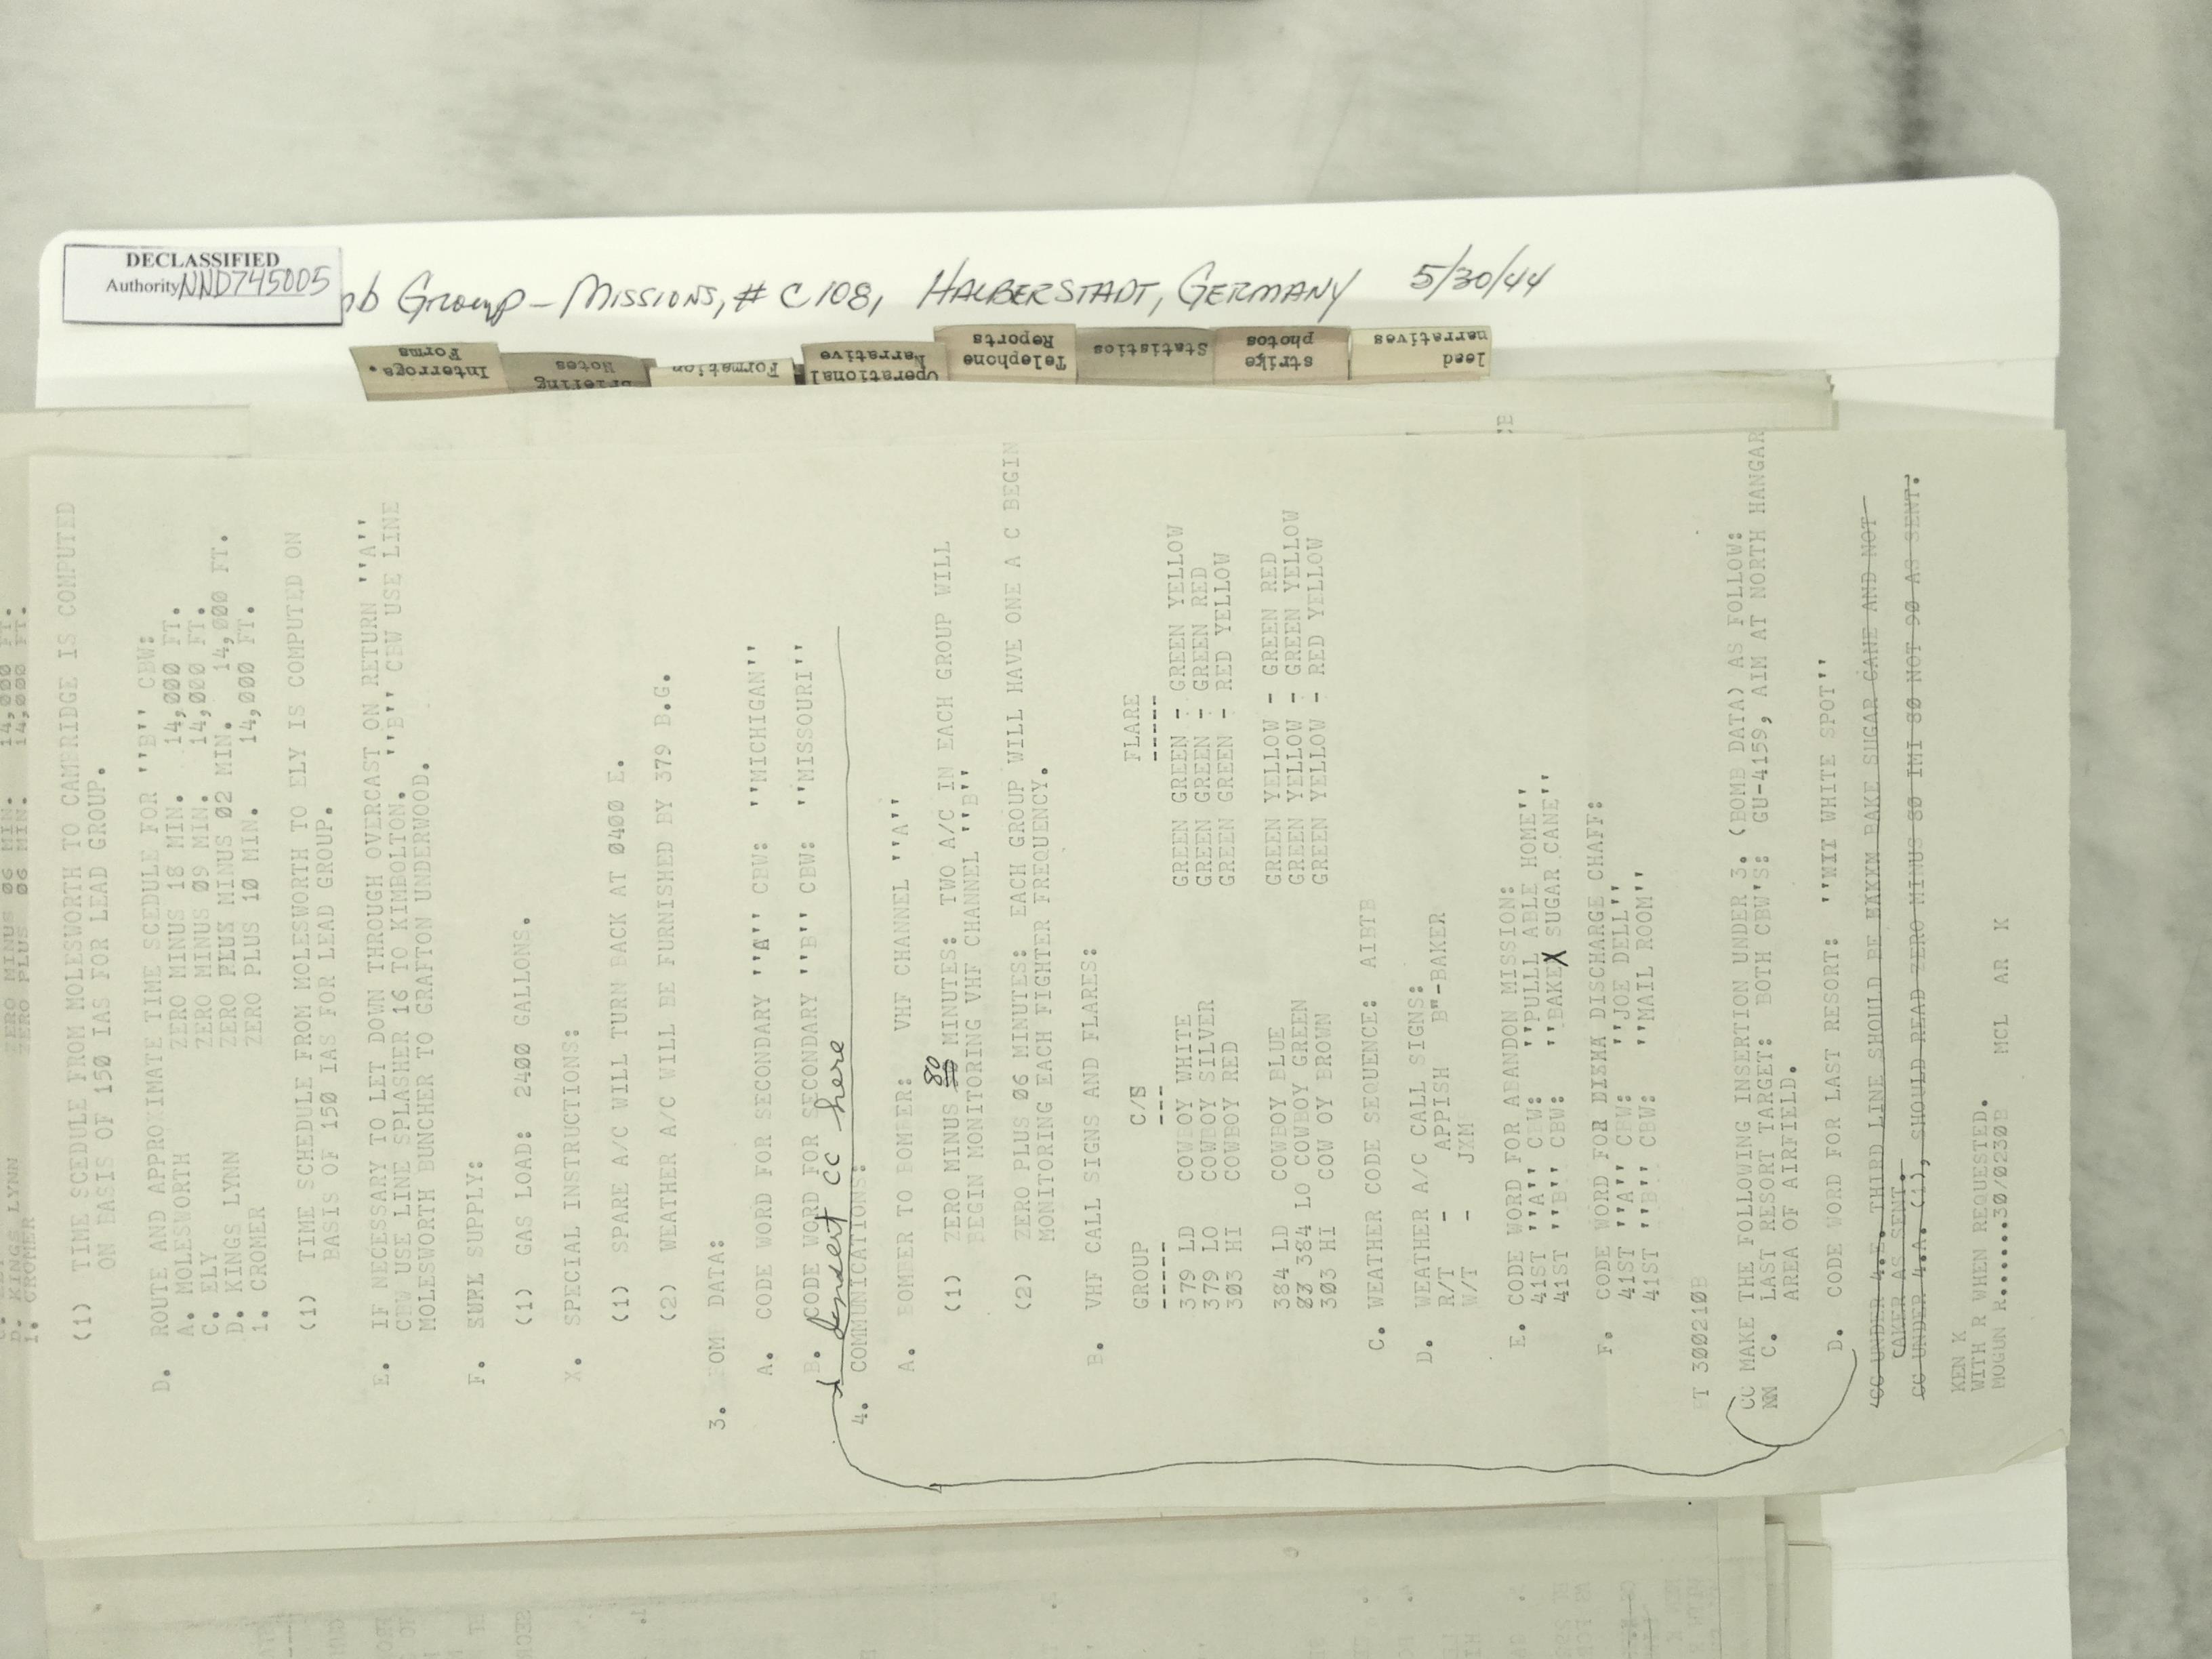 DECLASSIFIED
Authority NND745005
Group - Missions, # C108, HALBERSTADT, GERMANY 5/30/44
Interroga. Forms
Briefing Notes
Formation
Operational Narrative
Telephone Reports
Statistics
strike photos
lead narratives
ZERO MINUS 06 MIN. 14,000 FT.
D. KINGS LYNN ZERO PLUS 06 MIN. 14,000 FT.
1. CROMER
(1) TIME SCEDULE FROM MOLESWORTH TO CAMBRIDGE IS COMPUTED
ON BASIS OF 150 IAS FOR LEAD GROUP.
D. ROUTE AND APPROXIMATE TIME SCEDULE FOR ''B'' CBW:
A. MOLESWORTH ZERO MINUS 18 MIN. 14,000 FT.
C. ELY ZERO MINUS 09 MIN. 14,000 FT.
D. KINGS LYNN ZERO PLUS MINUS 02 MIN. 14,000 FT.
1. CROMER ZERO PLUS 10 MIN. 14,000 FT.
(1) TIME SCHEDULE FROM MOLESWORTH TO ELY IS COMPUTED ON
BASIS OF 150 IAS FOR LEAD GROUP.
E. IF NECESSARY TO LET DOWN THROUGH OVERCAST ON RETURN ''A''
CBW USE LINE SPLASHER 16 TO KIMBOLTON. ''B'' CBW USE LINE
MOLESWORTH BUNCHER TO GRAFTON UNDERWOOD.
F. SURL SUPPLY:
(1) GAS LOAD: 2400 GALLONS.
X. SPECIAL INSTRUCTIONS:
(1) SPARE A/C WILL TURN BACK AT 0400 E.
(2) WEATHER A/C WILL BE FURNISHED BY 379 B.G.
3. OM DATA:
A. CODE WORD FOR SECONDARY ''A'' CBW: ''MICHIGAN''
B. CODE WORD FOR SECONDARY ''B'' CBW: ''MISSOURI''
Insert CC here
4. COMMUNICATIONS:
A. BOMBER TO BOMBER: VHF CHANNEL ''A''
80
(1) ZERO MINUS MINUTES: TWO A/C IN EACH GROUP WILL
BEGIN MONITORING VHF CHANNEL ''B''
(2) ZERO PLUS 06 MINUTES: EACH GROUP WILL HAVE ONE A C BEGIN
MONITORING EACH FIGHTER FREQUENCY.
B. VHF CALL SIGNS AND FLARES:
GROUP C/S FLARE
----- --- -----
379 LD COWBOY WHITE GREEN GREEN - GREEN YELLOW
379 LO COWBOY SILVER GREEN GREEN - GREEN RED
303 HI COWBOY RED GREEN GREEN - RED YELLOW
384 LD COWBOY BLUE GREEN YELLOW - GREEN RED
83 384 LO COWBOY GREEN GREEN YELLOW - GREEN YELLOW
303 HI COW OY BROWN GREEN YELLOW - RED YELLOW
C. WEATHER CODE SEQUENCE: AIBTB
D. WEATHER A/C CALL SIGNS:
R/T - APPISH B"-BAKER
W/T - JXM
E. CODE WORD FOR ABANDON MISSION:
41ST ''A'' CBW: ''PULLL ABLE HOME''
41ST ''B'' CBW: ''BAKEX SUGAR CANE''
F. CODE WORD FOR DISHA DISCHARGE CHAFF:
41ST ''A'' CBW: ''JOE DELL''
41ST ''B'' CBW: ''MAIL ROOM''
T 300210B
CC MAKE THE FOLLOWING INSERTION UNDER 3. (BOMB DATA) AS FOLLOW:
NN C. LAST RESORT TARGET: BOTH CBW'S: GU-4159, AIM AT NORTH HANGAR
AREA OF AIRFIELD.
D. CODE WORD FOR LAST RESORT: ''WIT WHITE SPOT''
CC UNDER 4.E. THIRD LINE SHOULD BE MAKKM BAKE SUGAR CANE AND NOT
CAKER AS SENT.
CC UNDER 4.A. (1), SHOULD READ ZERO MINUS 80 IMI 80 NOT 90 AS SENT.
KEN K
WITH R WHEN REQUESTED.
MOGUN R......30/0230B MCL AR K